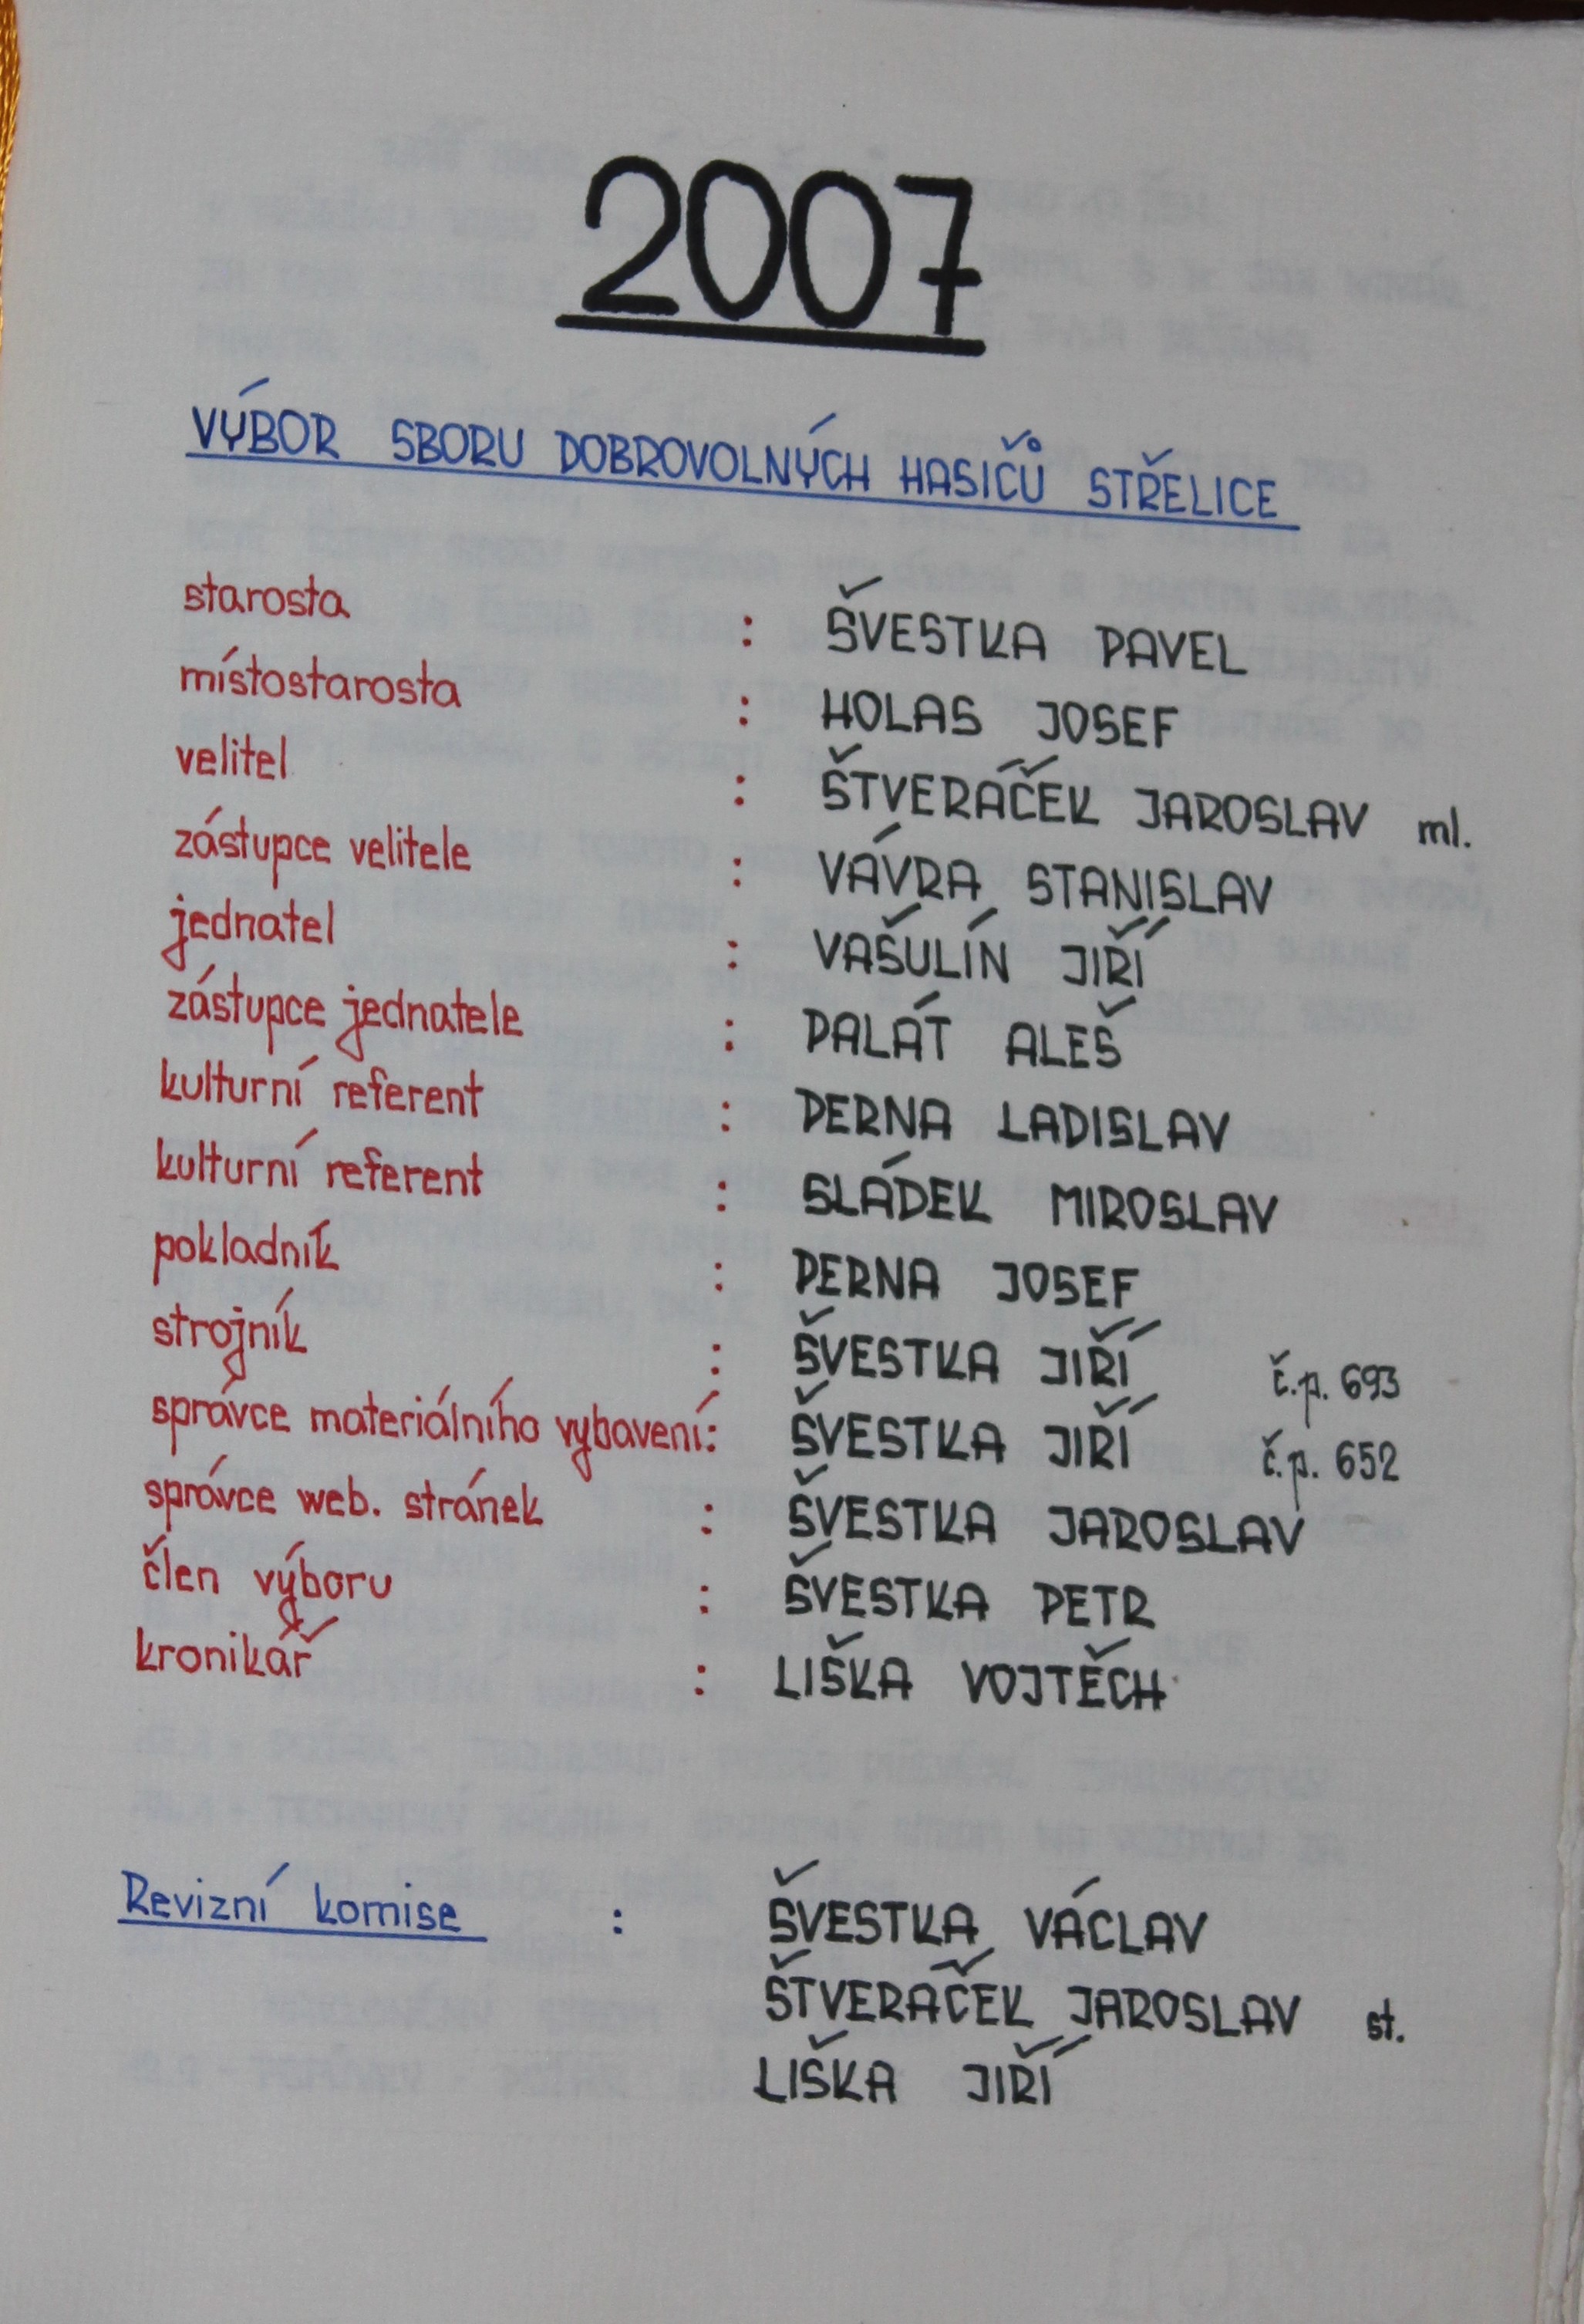 2007
VÝBOR SBORU DOBROVOLNÝCH HASIČŮ STŘELICE
starosta : ŠVESTKA PAVEL
místostarosta : HOLAS JOSEF
velitel : ŠTVERÁČEK JAROSLAV ml.
zástupce velitele : VÁVRA STANISLAV
jednatel : VAŠULÍN JIŘÍ
zástupce jednatele : PALÁT ALEŠ
kulturní referent : PERNA LADISLAV
kulturní referent : SLÁDEK MIROSLAV
pokladník : PERNA JOSEF
strojník : ŠVESTKA JIŘÍ č.p. 693
správce materiálního vybavení: ŠVESTKA JIŘÍ č.p. 652
správce web. stránek : ŠVESTKA JAROSLAV
člen výboru : ŠVESTKA PETR
kronikář : LIŠKA VOJTĚCH
Revizní komise : ŠVESTKA VÁCLAV
ŠTVERÁČEK JAROSLAV st.
LIŠKA JIŘÍ